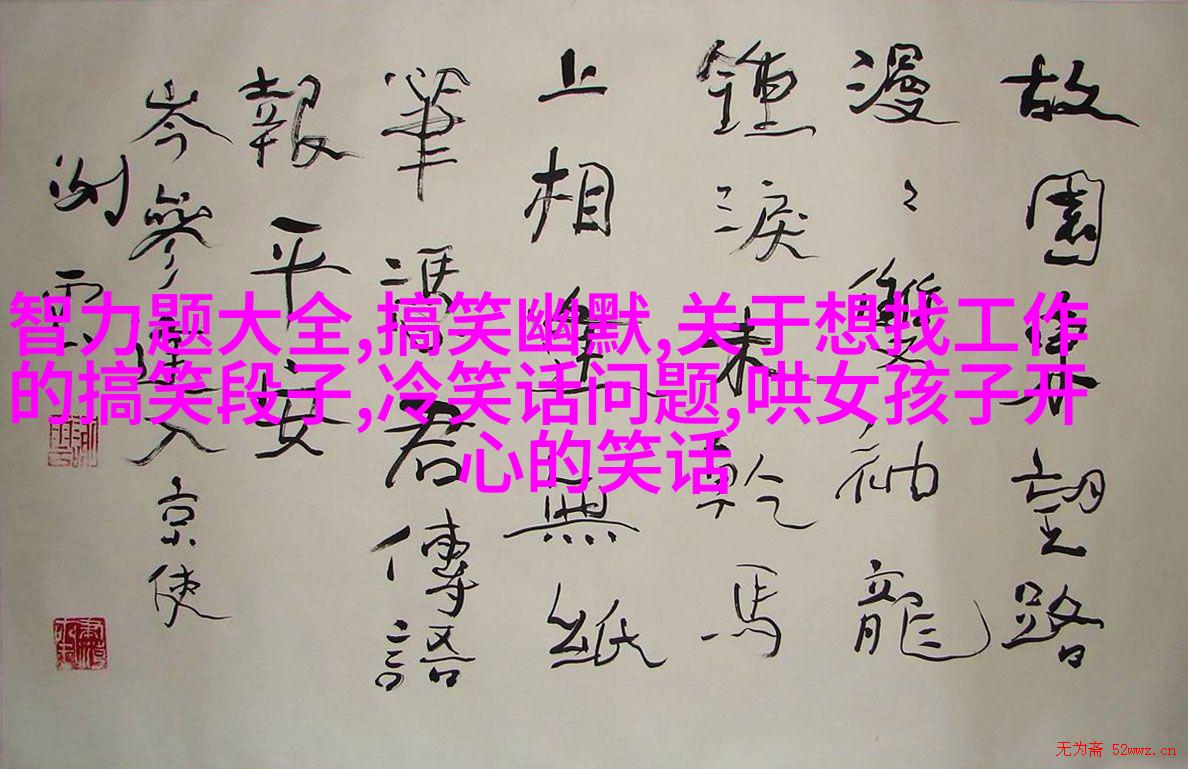 故園東望路
漫〻雙袖龍
鍾淚未乾馬
上相逢無紙
筆憑君傳語
報平安
岑參逢入京使
智力题大全,搞笑幽默,关于想找工作
的搞笑段子,冷笑话问题,哄女孩子开
心的笑话
无为斋 52wwz.cn